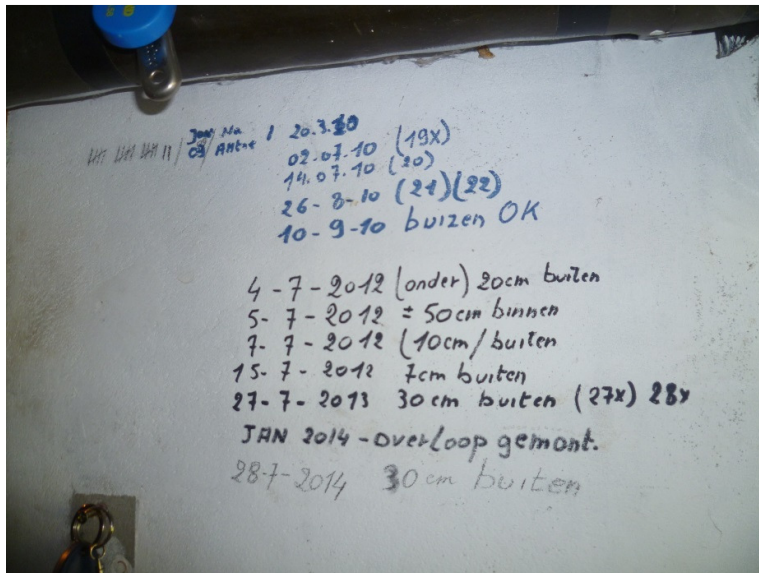 20.3.10
02.07.10 (19x)
14.07.10 (20)
26-8-10 (21)(22)
10-9-10 buizen OK
4-7-2012 (onder) 20cm buiten
5-7-2012 ± 50cm binnen
7-7-2012 (10cm/buiten
15-7-2012 7cm buiten
27-7-2013 30cm buiten (27x) 28x
JAN 2014 - overloop gemont.
28-7-2014 30cm buiten